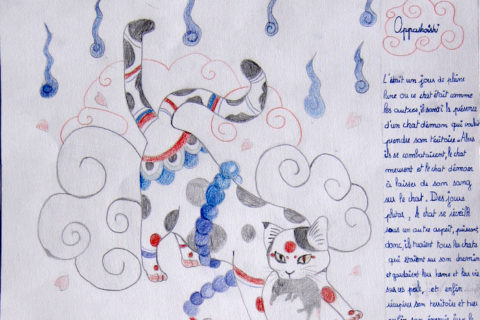 C'était un jour de pleine
lune ou ce chat était comme
les autres, il sentit la présence
d'un chat démon qui voulait
prendre son téritoire. Alors
ils se combatairent, le chat
meurent et le chat démon
à laisser de son sang
sur le chat. Des jours
plus, le chat se réveille
sous un autre aspet, puissant,
donc, il tuaient tous les chats
qui étaient sur son chemin
et gardaient leur âme et les mis
sur sa peau, et enfin
récupère son téritoire et tuer